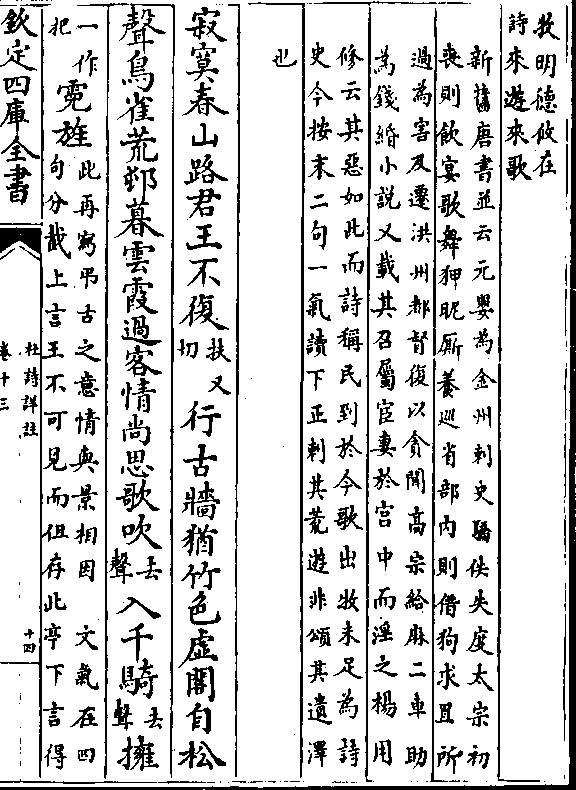 牧明德攸在
詩來遊來歌
新舊唐書並云元嬰為金州刺史驕佚失度太宗初
喪則飲宴歌舞狎昵厮養巡省部內則借狗求罝所
過為害及遷洪州都督復以貪聞高宗給麻二車助
為錢緡小説又載其召屬宦妻於宮中而淫之楊用
修云其惡如此而詩稱民到於今歌出牧未足為詩
史今按末二句一氣讀下正刺其荒遊非頌其遺澤
也
寂寞春山路君王不復扶又切行古牆猶竹色虛閣自松
聲鳥雀荒邨暮雲霞過客情尚思歌吹去聲入千騎去聲擁
一作把霓旌此再窮弔古之意情與景相因 文氣在四
句分截上言王不可見而但存此亭下言得
欽定四庫全書
杜詩詳註
卷十三
十四